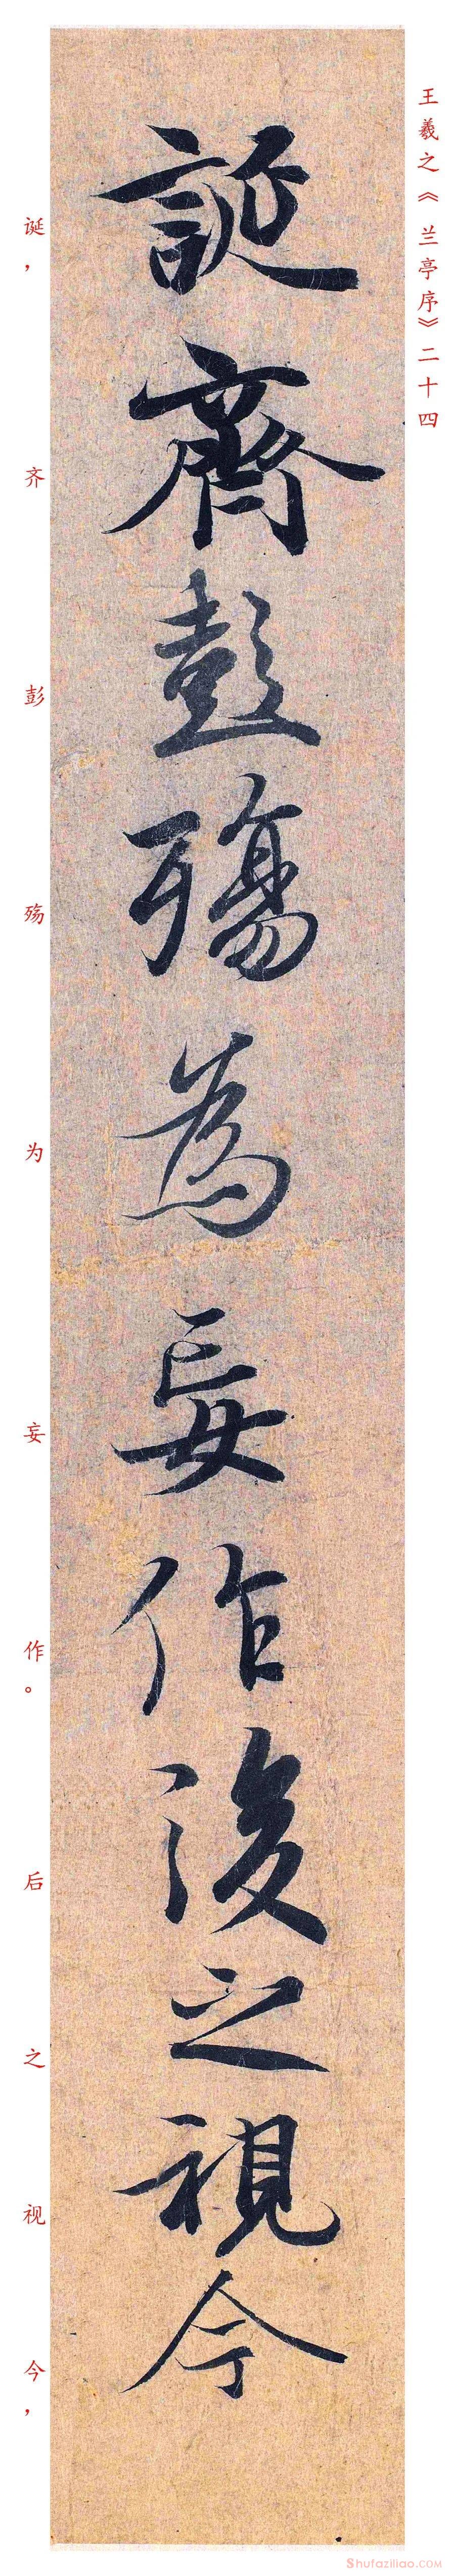 王羲之《兰亭序》二十四
誕齊彭殤為妄作後之視今
诞，齐彭殇为妄作。后之视今，
Shufaziliao.COM